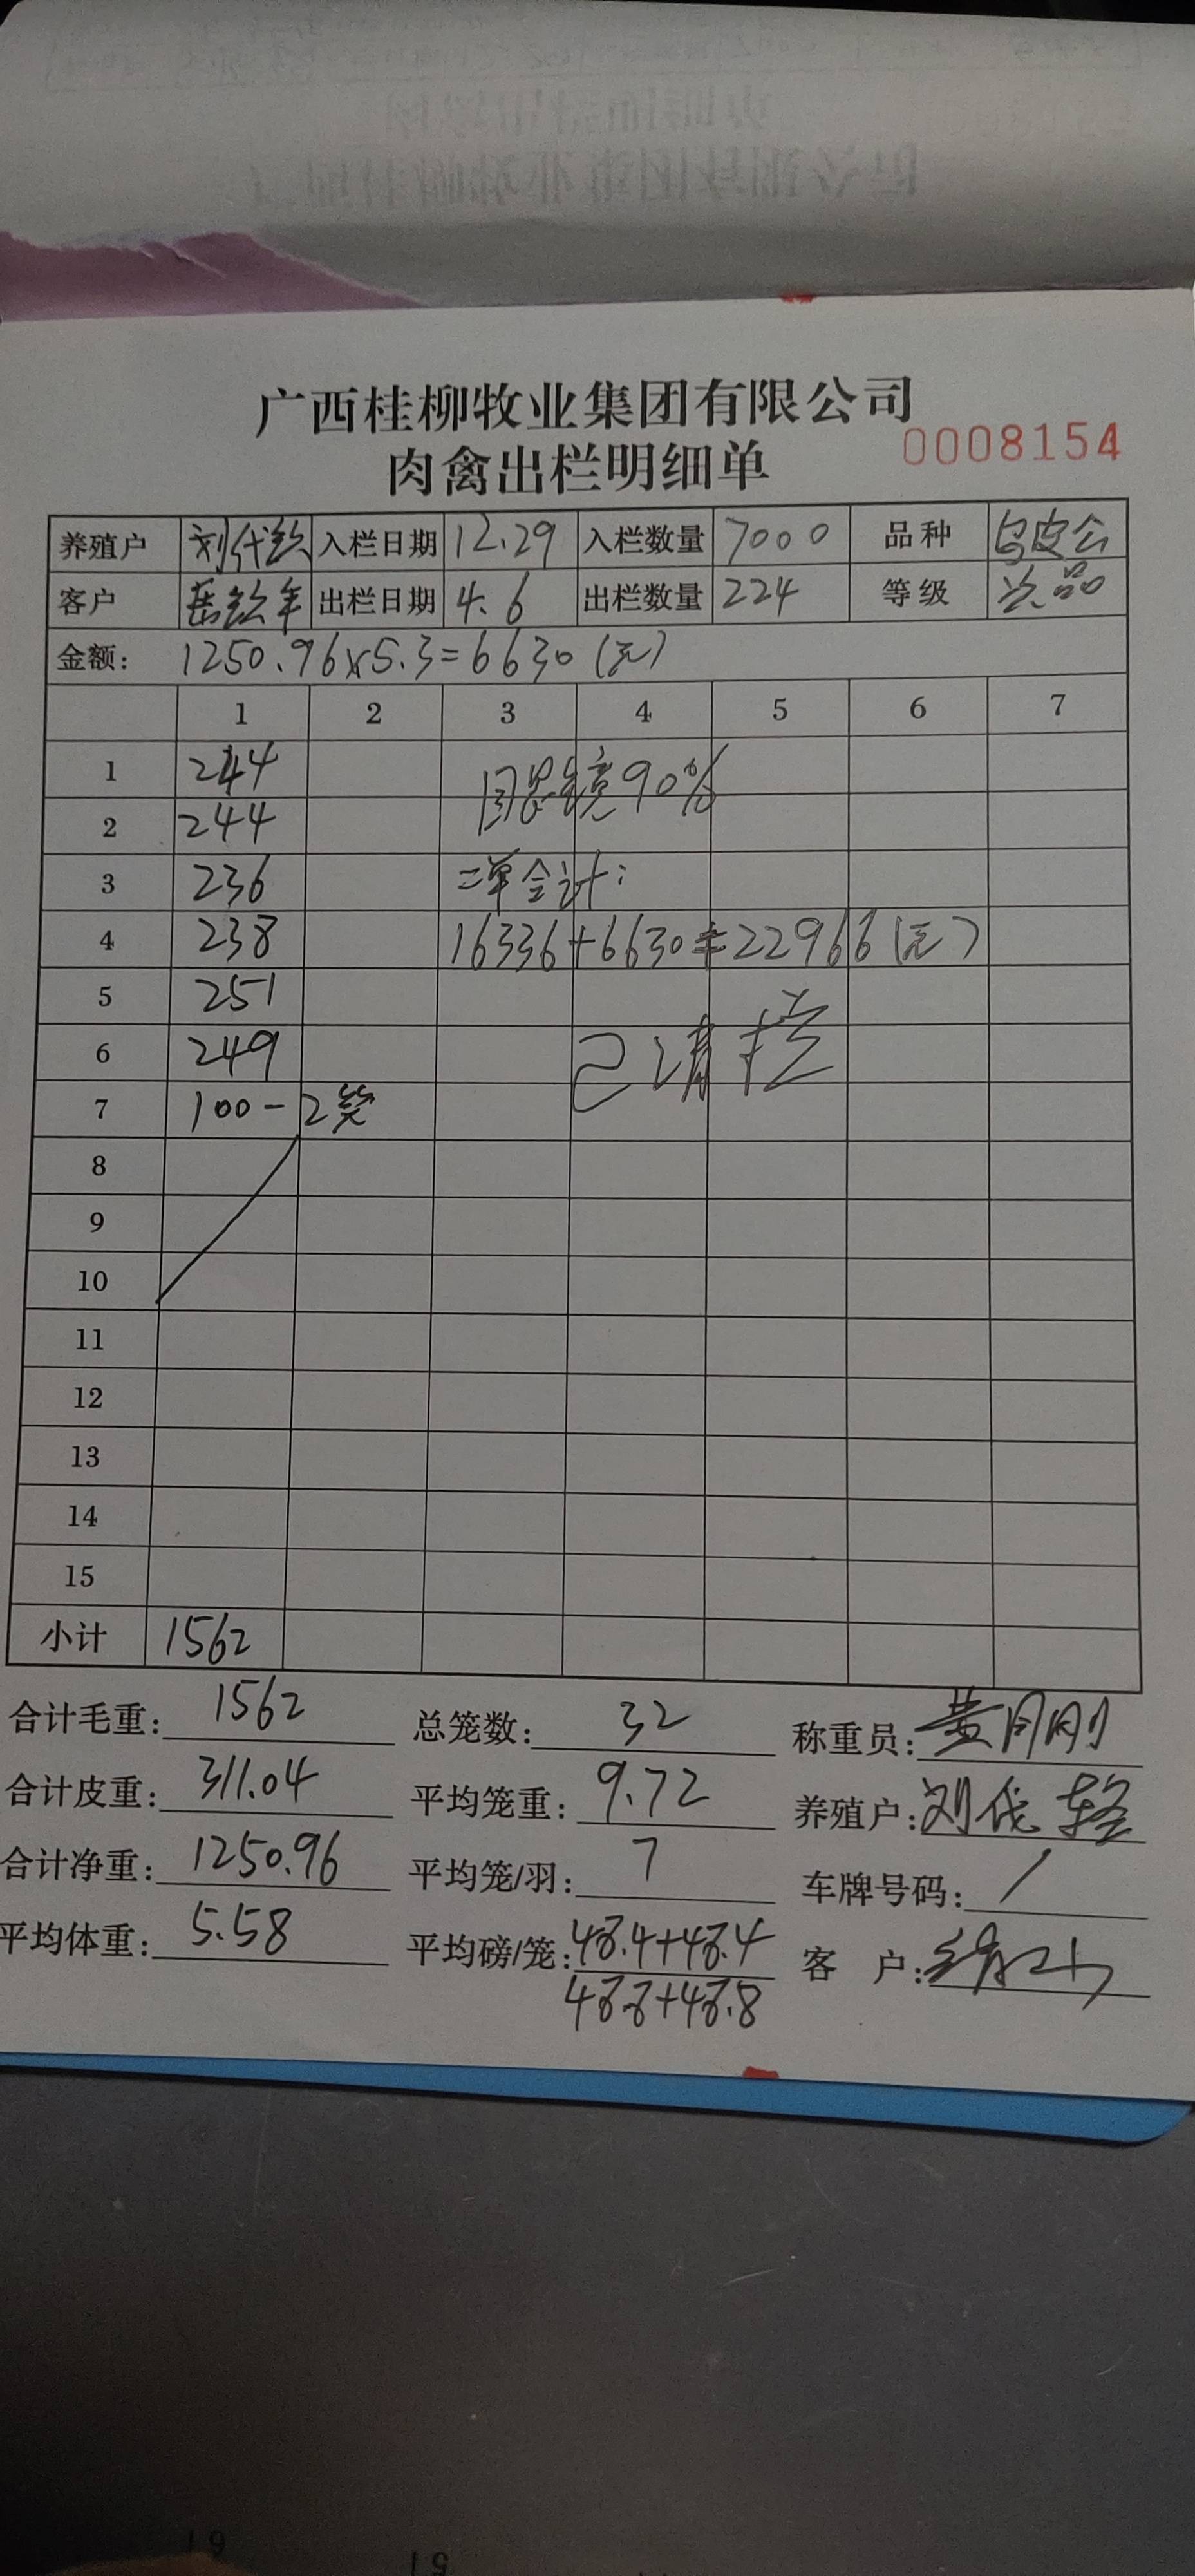 广西桂柳牧业集团有限公司
肉禽出栏明细单
0008154
养殖户 入栏日期 12.29 入栏数量 7000 品种 乌皮公
客户 出栏日期 4.6 出栏数量 224 等级 次品
金额: 1250.96×5.3=6630(元)
1 2 3 4 5 6 7
1 244
2 244 90%
3 236 二单合计:
4 238 16336+6630=22966(元)
5 251
6 249 已清栏
7 100-2笼
8
9
10
11
12
13
14
15
小计 1562
合计毛重: 1562 总笼数: 32 称重员:
合计皮重: 311.04 平均笼重: 9.72 养殖户: 刘代轻
合计净重: 1250.96 平均笼/羽: 7 车牌号码: /
平均体重: 5.58 平均磅/笼: 48.4+48.4 客 户:
48.8+48.8